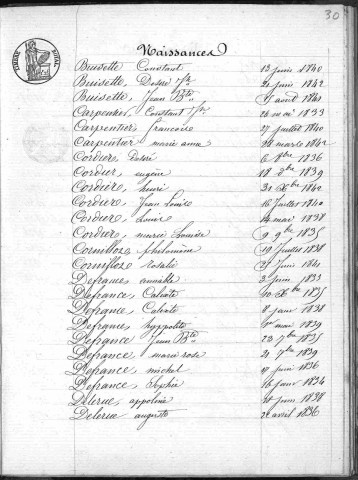 30
TIMBRE ROYAL
Naissances
Buisette Constant 13 juin 1840
Buisette, Désiré 21 juin 1842
Buisette, Jean Bte 9 avril 1841
Carpentier, Constant 26 mai 1833
Carpentier, françoise 27 juillet 1840
Carpentier marie anne 28 mars 1842
Cordier, Désiré 6 8bre 1836
Cordier, eugène 18 1839
Cordière, henri 31 Xbre 1840
Cordière, Jean Louis 16 Juillet 1840
Cordière, Louis 14 mai 1838
Cordière, marie Louise 9 9bre 1835
Cornilloz philomène 19 Juillet 1838
Cornilloz Rosalie 27 Juin 1841
Defrance, aimable 3 juin 1833
Defrance, Calixte 10 Xbre 1835
Defrance, Calixte 8 janv 1838
Defrance, hyppolite 1er mai 1839
Defrance Jean Bte 23 7bre 1835
Defrance marie rose 21 7bre 1839
Defrance, michel 11 juin 1836
Defrance, Sophie 16 janv 1834
Delerue, appoline 20 juin 1838
Delerue auguste 22 avril 1836